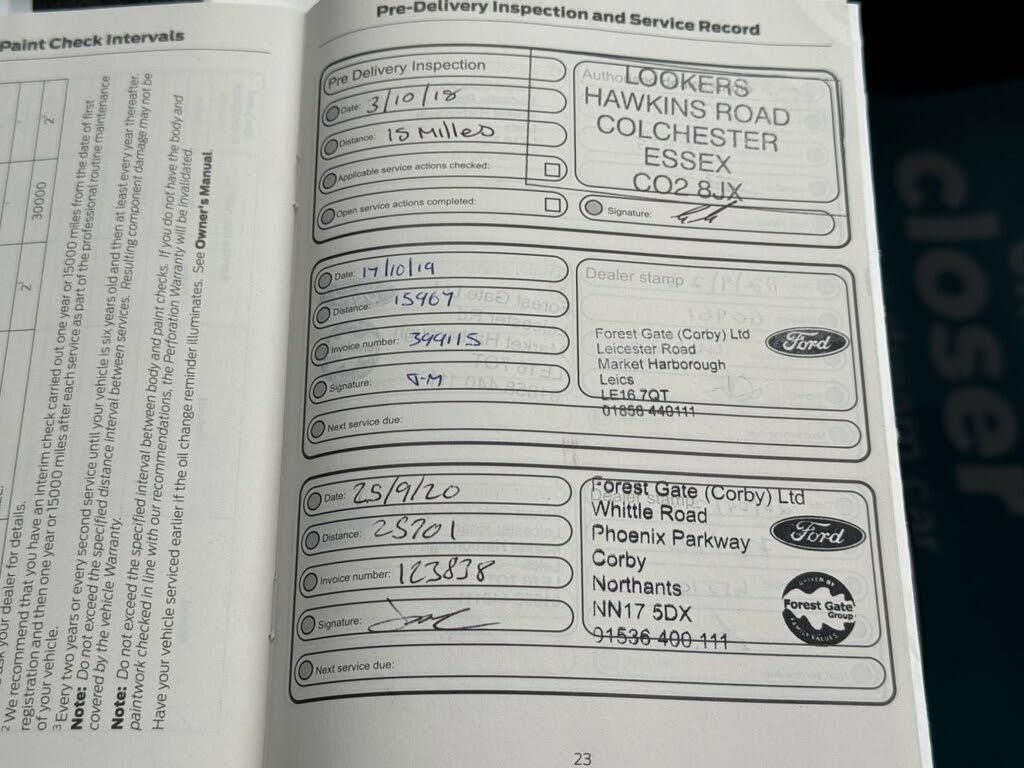 Paint Check Intervals
2¹
30000
2¹
ask your dealer for details.
² We recommend that you have an interim check carried out one year or 15000 miles from the date of first
registration and then one year or 15000 miles after each service as part of the professional routine maintenance
of your vehicle.
³ Every two years or every second service until your vehicle is six years old and then at least every year thereafter.
Note: Do not exceed the specified distance interval between services. Resulting component damage may not be
covered by the vehicle Warranty.
Note: Do not exceed the specified interval between body and paint checks. If you do not have the body and
paintwork checked in line with our recommendations, the Perforation Warranty will be invalidated.
Have your vehicle serviced earlier if the oil change reminder illuminates. See Owner's Manual.
Pre-Delivery Inspection and Service Record
Pre Delivery Inspection
Date: 3/10/18
Distance: 15 Milles
Applicable service actions checked:
Open service actions completed:
LOOKERS
HAWKINS ROAD
COLCHESTER
ESSEX
CO2 8JX
Signature:
Date: 17/10/19
Distance: 15967
Invoice number: 399115
Signature: J-M
Next service due:
Dealer stamp
Forest Gate (Corby) Ltd
Leicester Road
Market Harborough
Leics
LE16 7QT
01858 440111
Ford
Date: 25/9/20
Distance: 25701
Invoice number: 123838
Signature:
Next service due:
Dealer stamp
Forest Gate (Corby) Ltd
Whittle Road
Phoenix Parkway
Corby
Northants
NN17 5DX
01536 400 111
Ford
DRIVEN BY
Forest Gate
Group
FAMILY VALUES
23
closer